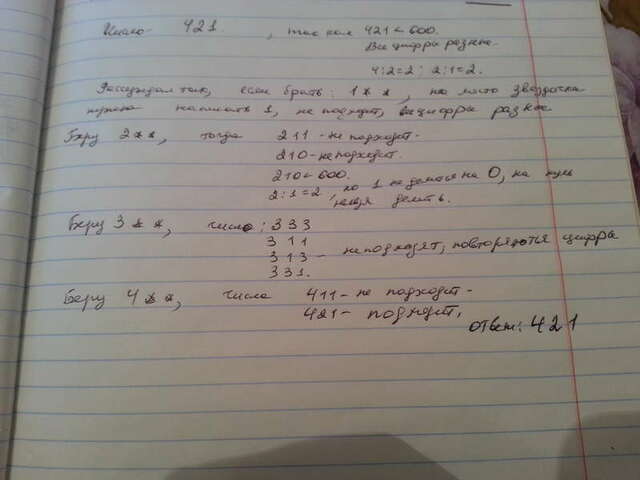 Число 421. , так как 421 < 600.
Все цифры разные.
4:2=2; 2:1=2.
Рассуждал так, если брать: 1**, на место звёздочки
нужно написать 1, не подходит, цифры разные
Беру 2**, тогда 211 - не подходит.
210 - не подходит.
210 < 600.
2:1=2, но 1 не делится на 0, на нуль
нельзя делить.
Беру 3**, число: 333
311
313 - не подходят, повторяются цифры
331.
Беру 4**, числа 411 - не подходит.
421 - подходит.
ответ: 421